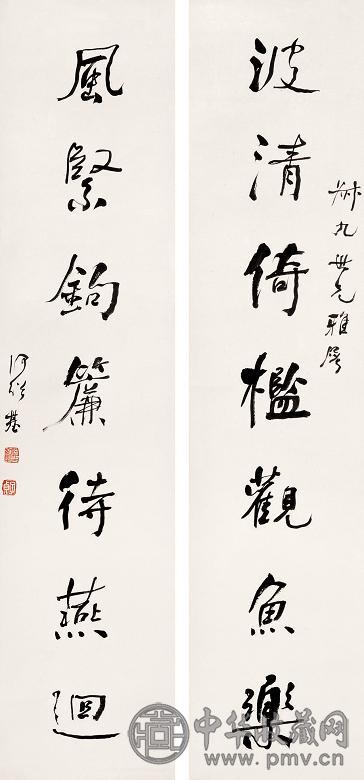 九世兄雅屬
波清倚檻觀魚樂
風緊鉤簾待燕迴
何紹基
中华收藏网
www.pmv.cn